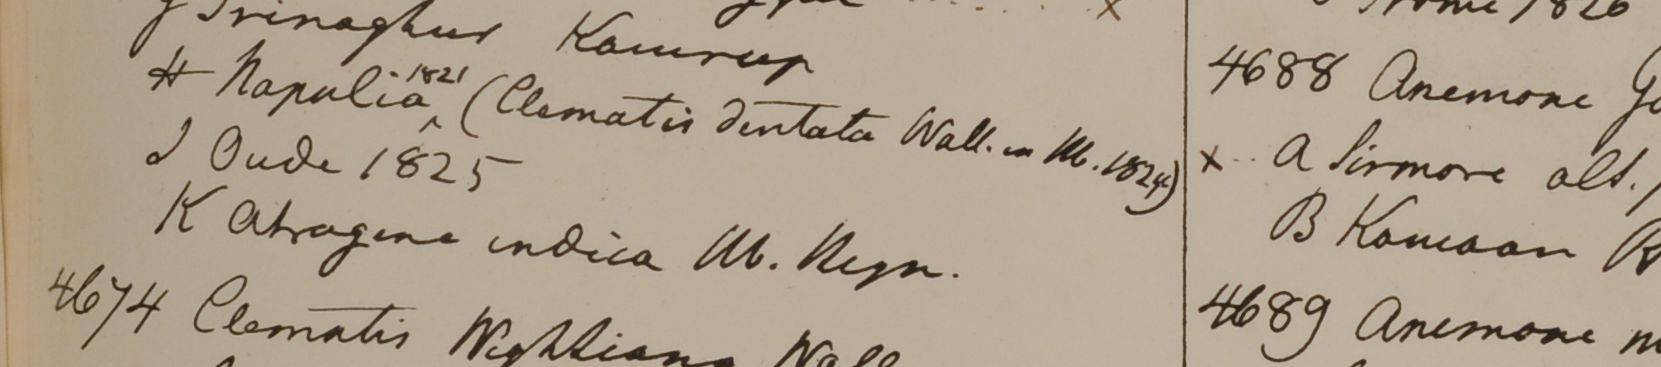 Srinaghur Kamrup
H Napalia 1821 (Clematis dentata Wall. in M. 1824)
J Oude 1825
K Atragene indica M. Heyn.
4674 Clematis Wightiana Wall
1826
4688 Anemone
x A Sirmore alt.
B Kamaon R
4689 Anemone